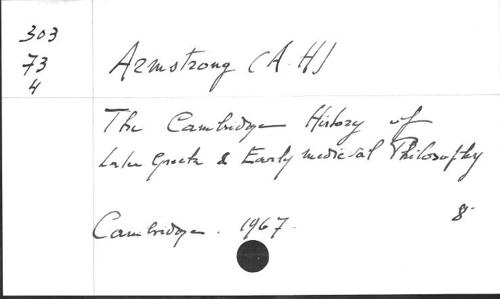 303
73
4
Armstrong (A.H)
The Cambridge History of
Later Greek & Early medieval Philosophy
Cambridge. 1967.
8-